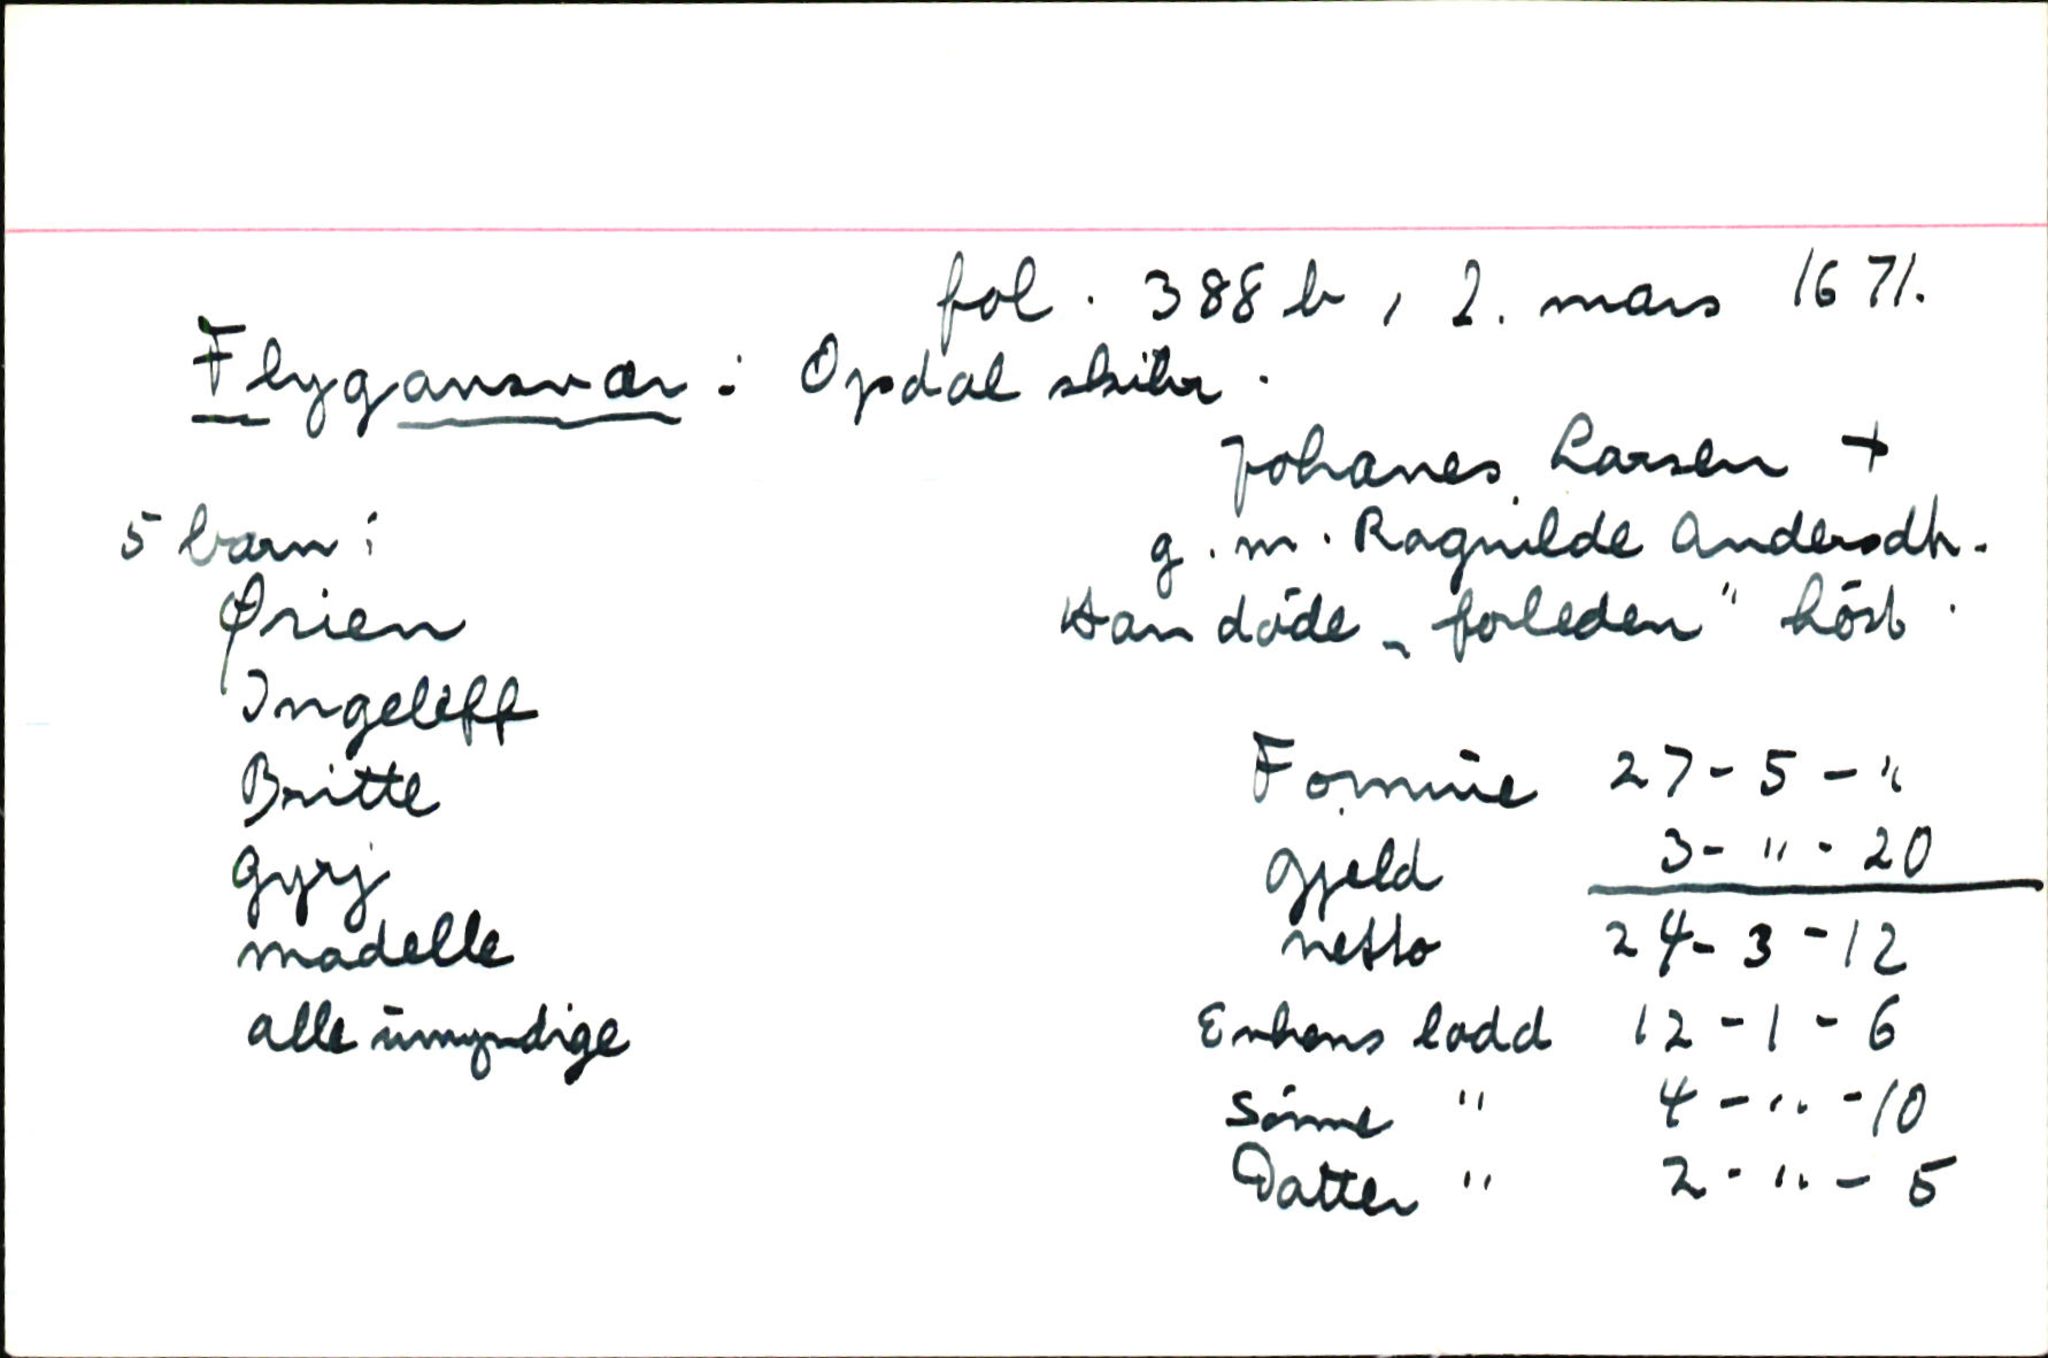 fol. 388 b, 2. mars 1671.
Flygansvær: Opdal skibr.
Johanes Larsen +
g.m. Ragnilde Andersdtr.
Han döde „forleden" höst.
5 barn:
Ørien
Ingeleff
Britte
Gyrj
Madelle
alle umyndige
Formue 27 - 5 - "
Gjeld 3 - " - 20
netto 24 - 3 - 12
Enkens lodd 12 - 1 - 6
Sönne " 4 - " - 10
Datter " 2 - " - 5